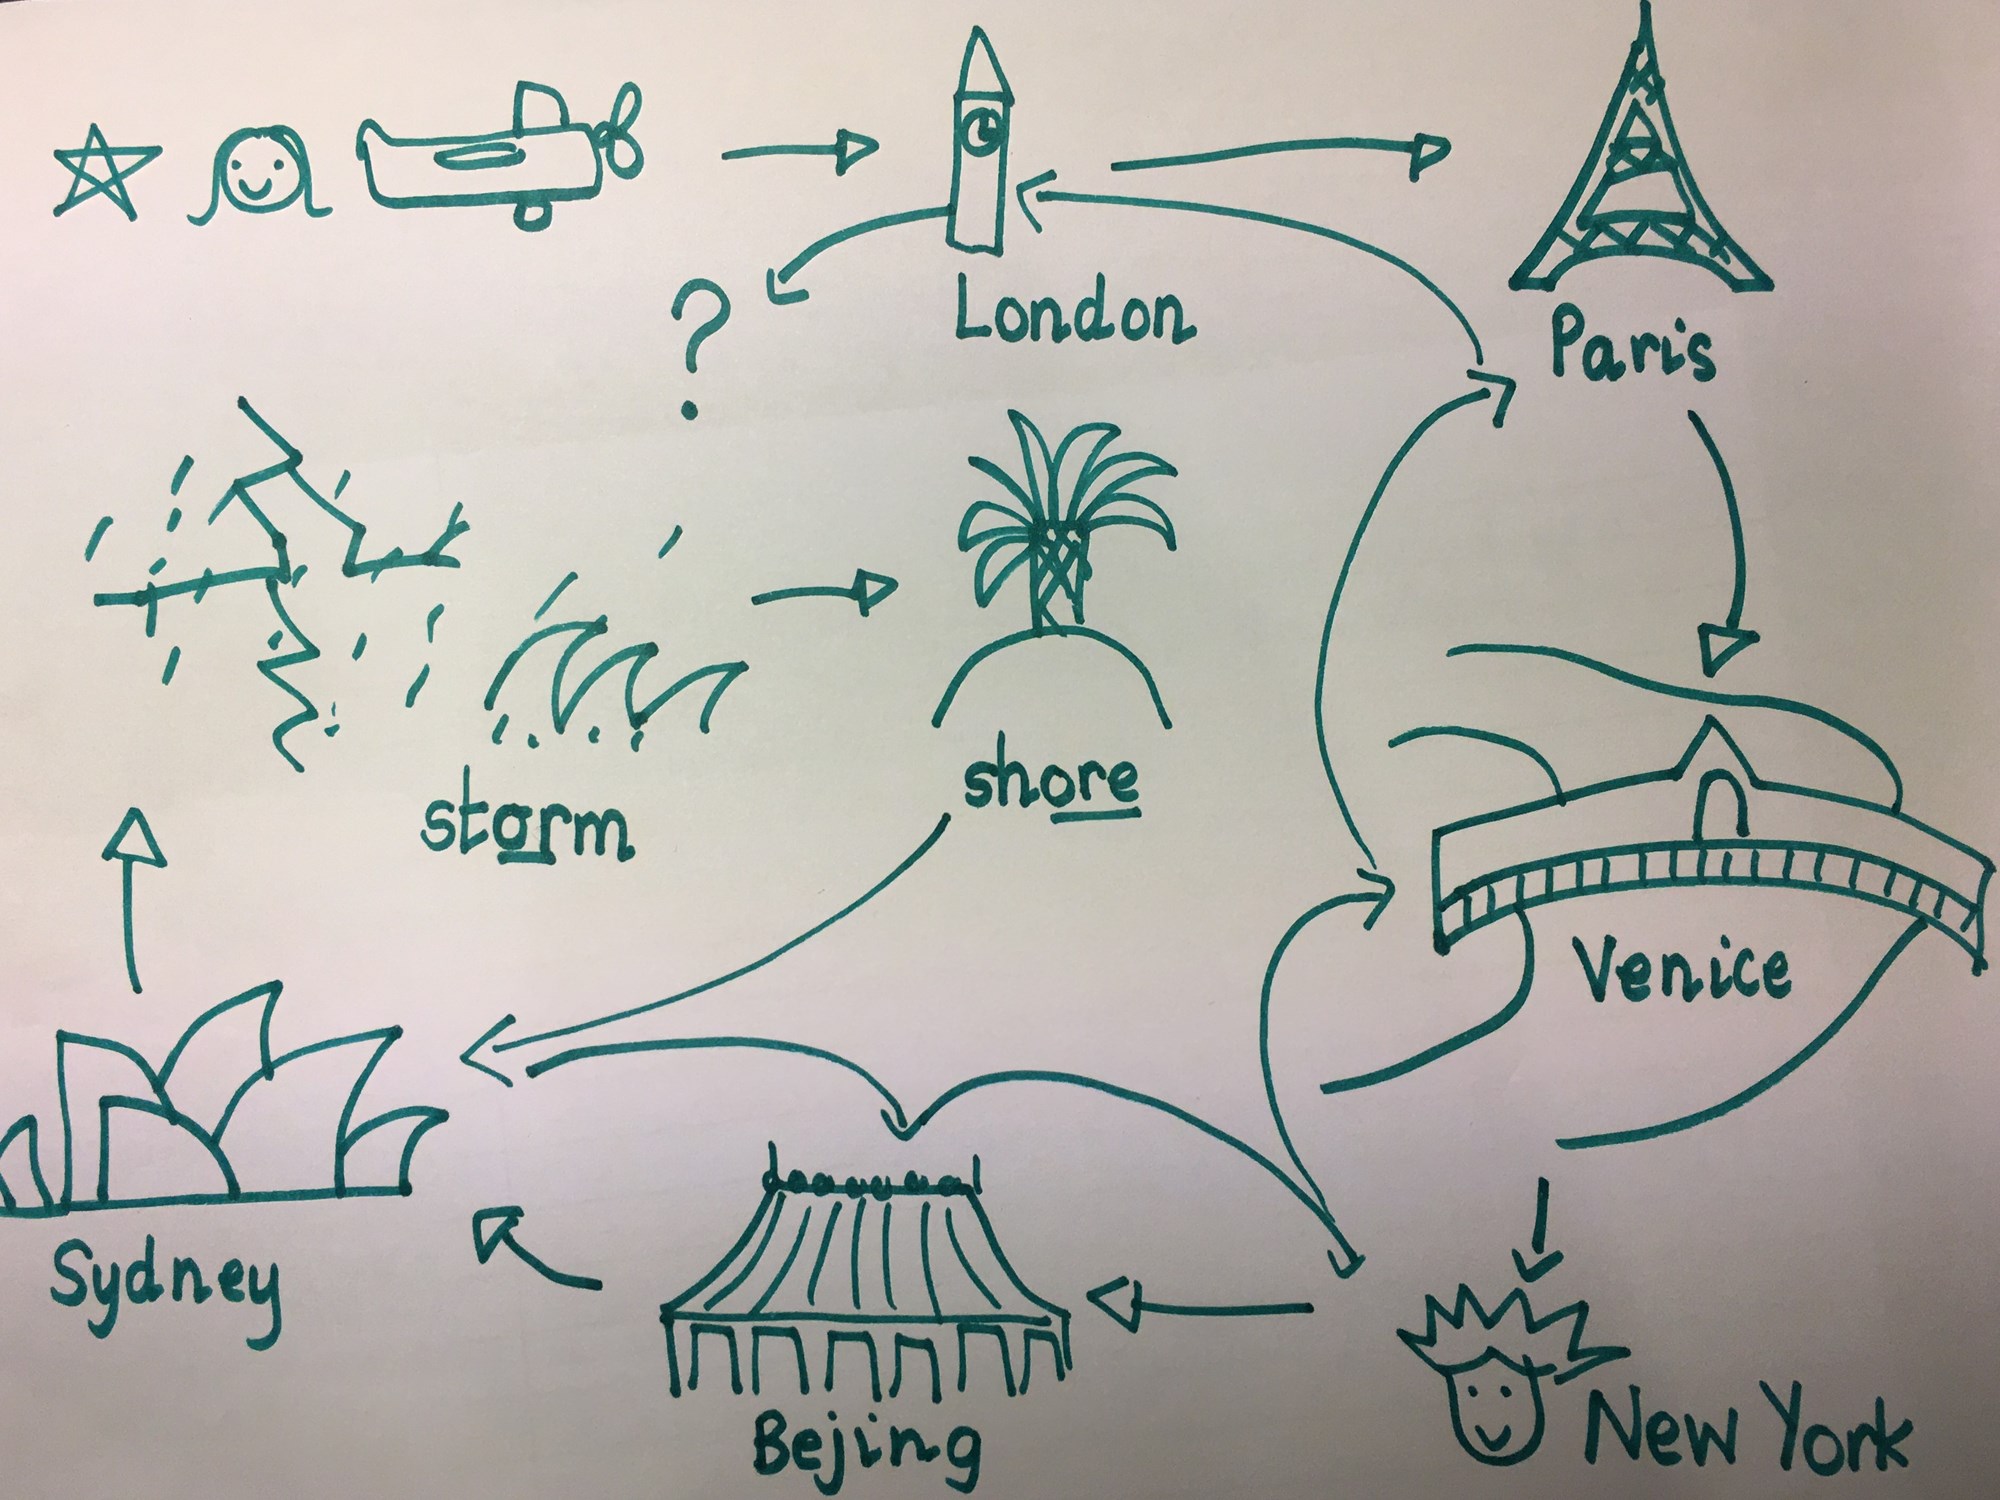 London
Paris
?
storm
shore
Venice
Sydney
Bejing
New York